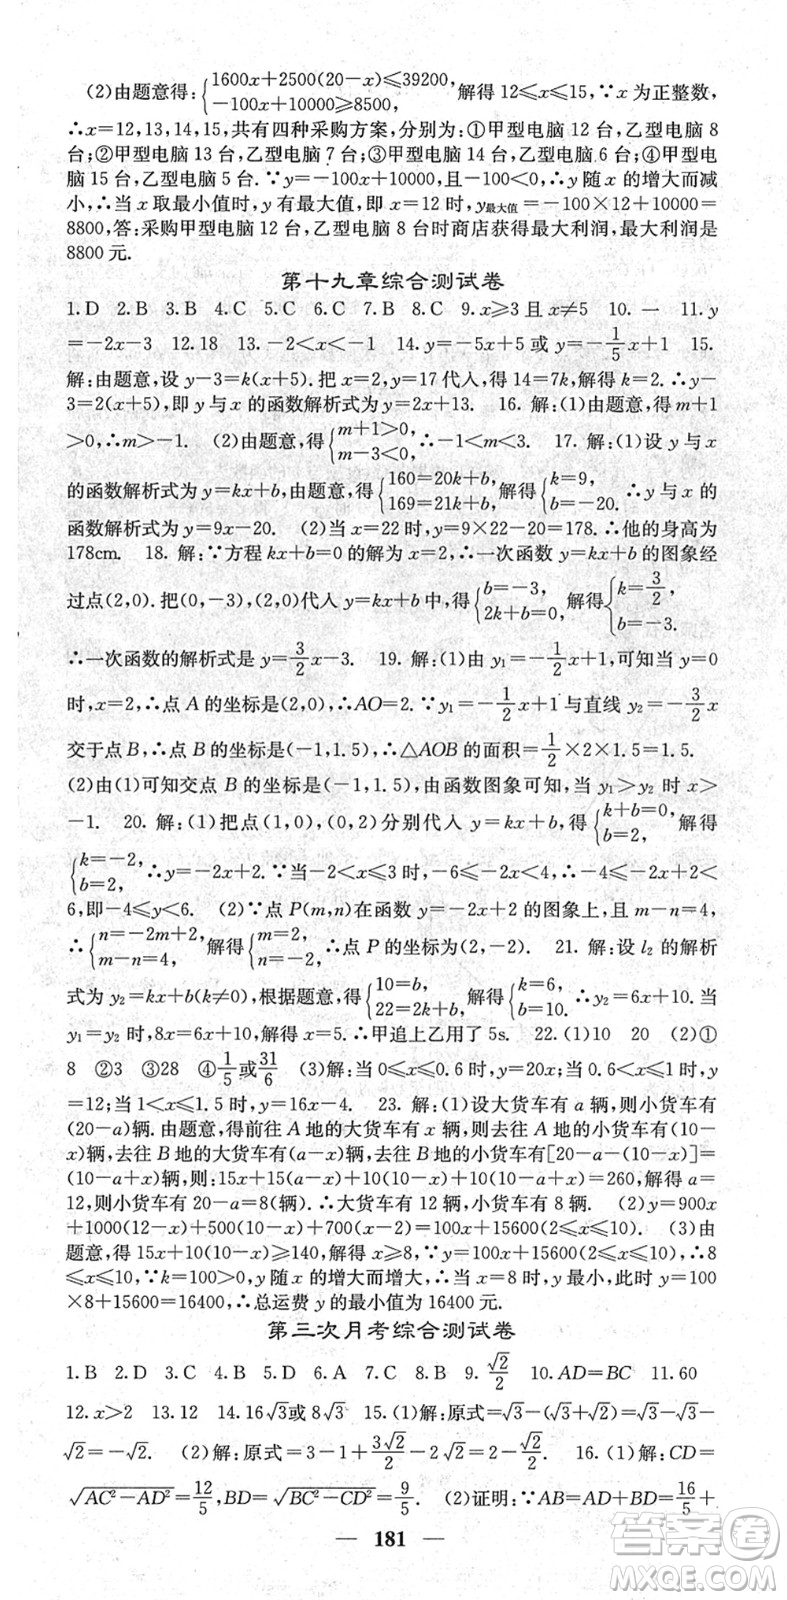 (2)由题意得:{1600x+2500(20-x)≤39200, -100x+10000≥8500, 解得 12≤x≤15,∵x 为正整数,
∴x=12,13,14,15,共有四种采购方案,分别为:①甲型电脑 12 台,乙型电脑 8
台;②甲型电脑 13 台,乙型电脑 7 台;③甲型电脑 14 台,乙型电脑 6 台;④甲型电
脑 15 台,乙型电脑 5 台.∵y=-100x+10000,且-100<0,∴y 随 x 的增大而减
小,∴当 x 取最小值时,y 有最大值,即 x=12 时,y最大值=-100×12+10000=
8800,答:采购甲型电脑 12 台,乙型电脑 8 台时商店获得最大利润,最大利润是
8800 元.
第十九章综合测试卷
1.D 2.B 3.B 4.C 5.C 6.C 7.B 8.C 9.x≥3 且 x≠5 10.一 11.y
=-2x-3 12.18 13.-2<x<-1 14.y=-5x+5 或 y=-1/5x+1 15.
解:由题意,设 y-3=k(x+5).把 x=2,y=17 代入,得 14=7k,解得 k=2.∴y-
3=2(x+5),即 y 与 x 的函数解析式为 y=2x+13. 16. 解:(1)由题意,得 m+1
>0,∴m>-1. (2)由题意,得{m+1>0, m-3<0, ∴-1<m<3. 17. 解:(1)设 y 与 x
的函数解析式为 y=kx+b,由题意,得{160=20k+b, 169=21k+b, 解得{k=9, b=-20. ∴y 与 x 的
函数解析式为 y=9x-20. (2)当 x=22 时,y=9×22-20=178.∴他的身高为
178cm. 18. 解:∵方程 kx+b=0 的解为 x=2,∴一次函数 y=kx+b 的图象经
过点(2,0).把(0,-3),(2,0)代入 y=kx+b 中,得{b=-3, 2k+b=0, 解得{k=3/2, b=-3.
∴一次函数的解析式是 y=3/2x-3. 19. 解:(1)由 y₁=-1/2x+1,可知当 y=0
时,x=2,∴点 A 的坐标是(2,0),∴AO=2.∵y₁=-1/2x+1 与直线 y₂=-3/2x
交于点 B,∴点 B 的坐标是(-1,1.5),∴△AOB 的面积=1/2×2×1.5=1.5.
(2)由(1)可知交点 B 的坐标是(-1,1.5),由函数图象可知,当 y₁>y₂ 时 x>
-1. 20. 解:(1)把点(1,0),(0,2)分别代入 y=kx+b,得{k+b=0, b=2, 解得
{k=-2, b=2, ∴y=-2x+2.∵当-2<x≤3 时,-6≤-2x<4,∴-4≤-2x+2<
6,即-4≤y<6. (2)∵点 P(m,n)在函数 y=-2x+2 的图象上,且 m-n=4,
∴{n=-2m+2, m-n=4, 解得{m=2, n=-2, ∴点 P 的坐标为(2,-2). 21. 解:设 l₂ 的解析
式为 y₂=kx+b(k≠0),根据题意,得{10=b, 22=2k+b, 解得{k=6, b=10. ∴y₂=6x+10.当
y₁=y₂ 时,8x=6x+10,解得 x=5.∴甲追上乙用了 5s. 22.(1)10 20 (2)①
8 ②3 ③28 ④1/5或31/6 (3)解:当 0≤x≤0.6 时,y=20x;当 0.6<x≤1 时,y
=12;当 1<x≤1.5 时,y=16x-4. 23. 解:(1)设大货车有 a 辆,则小货车有
(20-a)辆.由题意,得前往 A 地的大货车有 x 辆,则去往 A 地的小货车有(10-
x)辆,去往 B 地的大货车有(a-x)辆,去往 B 地的小货车有[20-a-(10-x)]=
(10-a+x)辆,则:15x+15(a-x)+10(10-x)+10(10-a+x)=260,解得 a=
12,则小货车有 20-a=8(辆).∴大货车有 12 辆,小货车有 8 辆. (2)y=900x
+1000(12-x)+500(10-x)+700(x-2)=100x+15600(2≤x≤10). (3)由
题意,得 15x+10(10-x)≥140,解得 x≥8,∵y=100x+15600(2≤x≤10),∴8
≤x≤10,∵k>0,y 随 x 的增大而增大,∴当 x=8 时,y 最小,此时 y=100
×8+15600=16400,∴总运费 y 的最小值为 16400 元.
第三次月考综合测试卷
1.B 2.C 3.D 4.B 5.D 6.A 7.C 8.B 9.√2/2 10.AD=BC 11.60
12.x>2 13.12 14.16√3或 8√3 15.(1)解:原式=√3-(√3+√2)=√3-√3-
√2=-√2. (2)解:原式=3-1+3√2/2-2√2=2-√2/2. 16.(1)解:CD=
√(AC²-AD²)=12/5,BD=√(BC²-CD²)=9/5. (2)证明:∵AB=AD+BD=16/5+
— 181 —
答案圈
MXQE.COM